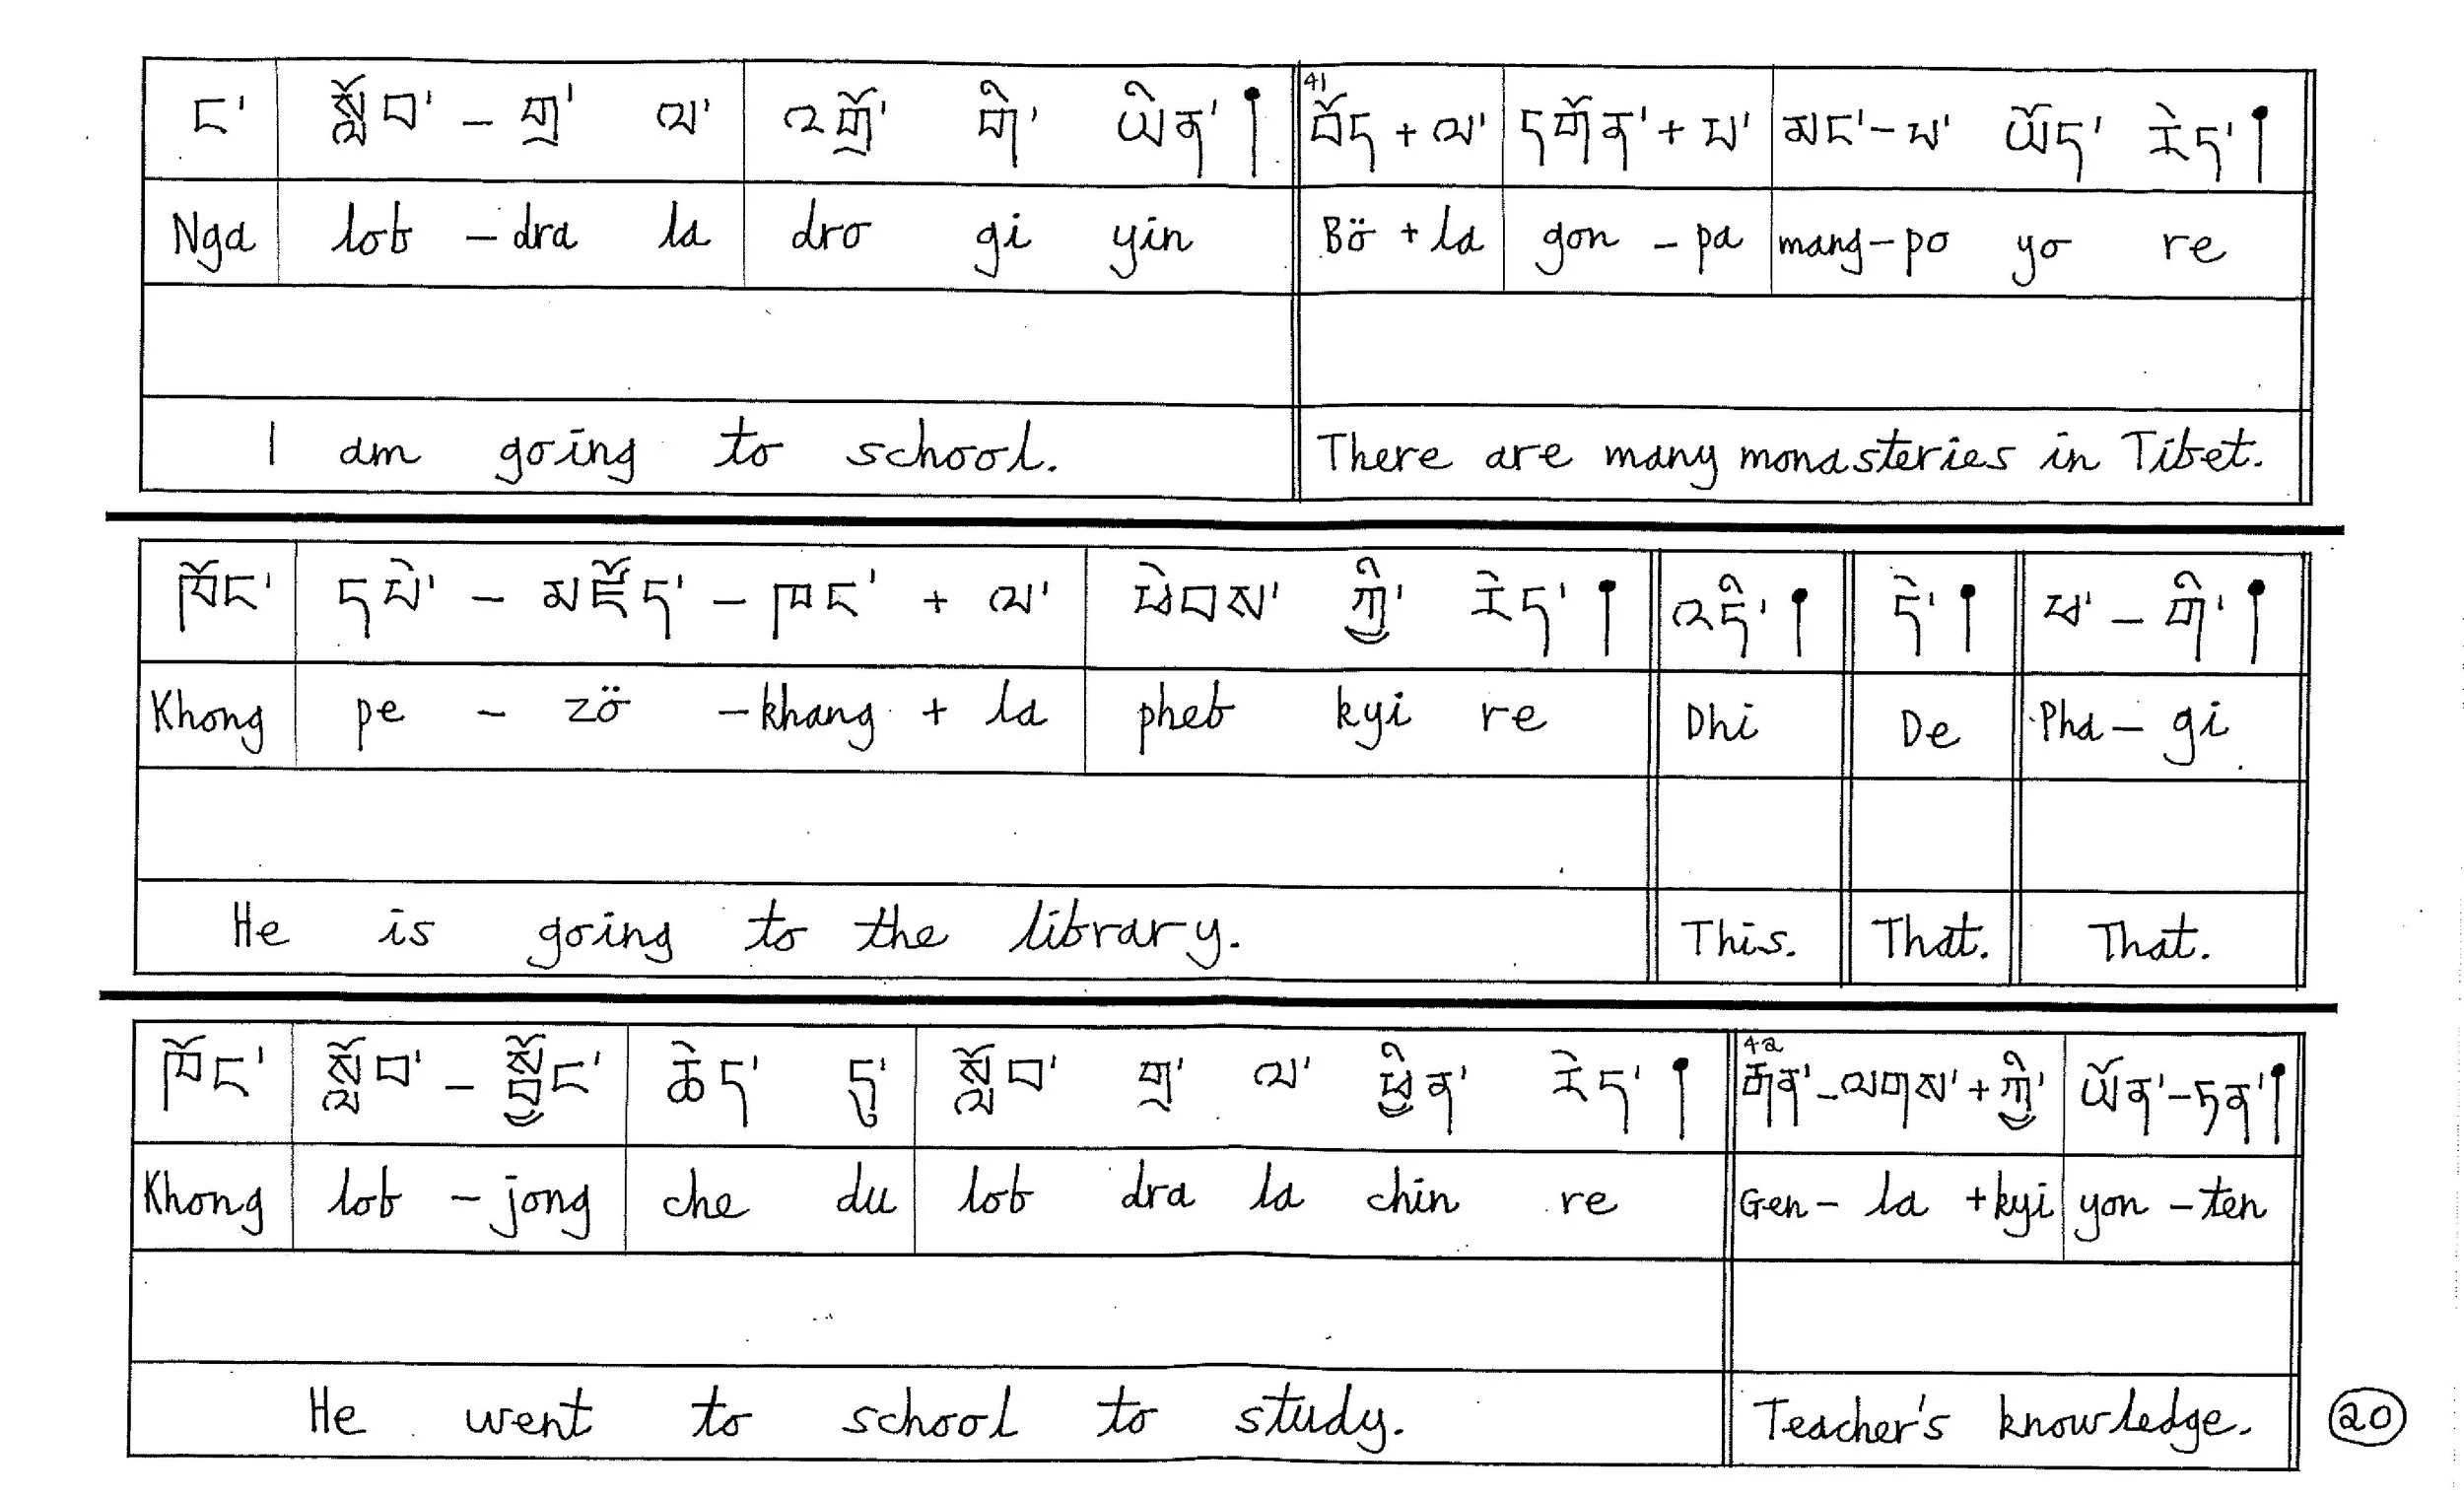 ང་ སློབ་ – གྲ་ ལ་ འགྲོ་ གི་ ཡིན་། 41 བོད + ལ་ དགོན་ + པ་ མང་ – པ་ ཡོད་ རེད་།
Nga lob – dra la dro gi yin Bö + la gon – pa mang – po yo re
I am going to school. There are many monasteries in Tibet.
ཁོང་ དཔེ་ – མཛོད་ – ཁང་ + ལ་ ཕེབས་ ཀྱི་ རེད་། འདི་། དེ་། ཕ་ – གི་།
Khong pe – zö – khang + la pheb kyi re Dhi De Pha – gi
He is going to the library. This. That. That.
ཁོང་ སློབ་ – སྦྱོང་ ཆེད་ དུ་ སློབ་ གྲ་ ལ་ ཕྱིན་ རེད་། 42 རྒན་ – ལགས་ + ཀྱི་ ཡོན་ – ཏན་།
Khong lob – jong che du lob dra la chin re Gen – la + kyi yon – ten
He went to school to study. Teacher's knowledge.
20